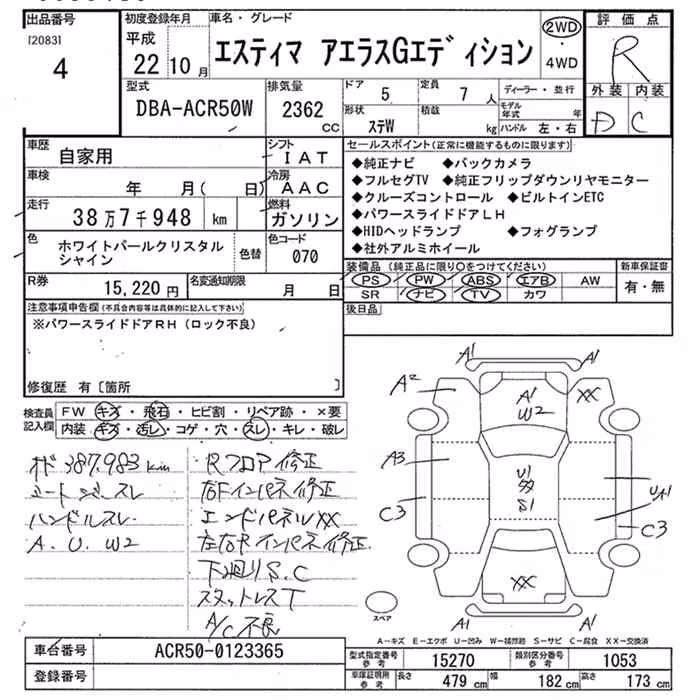 出品番号
[2083]
4
初度登録年月
平成
22 10 月
車名・グレード
エスティマ アエラスGエディション
2WD
・
4WD
評価点
R
外装 内装
D C
型式
DBA-ACR50W
排気量
2362
CC
ドア 5
定員 7 人
形状 ステW
積載 kg
ディーラー・並行
モデル年式 年
ハンドル 左・右
車歴
自家用
シフト
IAT
車検
年 月( 日)
冷房
AAC
走行
38万7千948 km
燃料
ガソリン
色
ホワイトパールクリスタル
シャイン
色替
色コード
070
R券
15,220 円
名変通知期限
月 日
セールスポイント(正常に機能するものに限ります)
◆純正ナビ ◆バックカメラ
◆フルセグTV ◆純正フリップダウンリヤモニター
◆クルーズコントロール ◆ビルトインETC
◆パワースライドドアLH
◆HIDヘッドランプ ◆フォグランプ
◆社外アルミホイール
装備品(純正品に限り○をつけてください)
PS PW ABS エアB AW
SR ナビ TV カワ
新車保証書
有・無
後日品
注意事項申告欄(不具合内容等は具体的に記入して下さい)
※パワースライドドアRH(ロック不良)
修復歴 有[箇所 ]
検査員
記入欄
FW キズ・飛石・ヒビ割・リペア跡・×要
内装 キズ・汚レ・コゲ・穴・スレ・キレ・破レ
387.983 km
シートジースレ
ハンドルスレ
A.U.W2
Rフロア修正
右Fインパネ修正
エンドパネルXX
左右Rインパネ修正
下廻りS.C
スタットレスT
A/C不良
A1 A1
A2
A1
W2
XX
A3
U1
XX
S1
UA1
C3 C3
XX
A1 A1
スペア
A-キズ E-エクボ U-凹み W-補修跡 S-サビ C-腐食 XX-交換済
車台番号
ACR50-0123365
登録番号
型式指定番号
参考
15270
類別区分番号
参考
1053
車庫証明用
参考
長さ
479 cm
幅
182 cm
高さ
173 cm